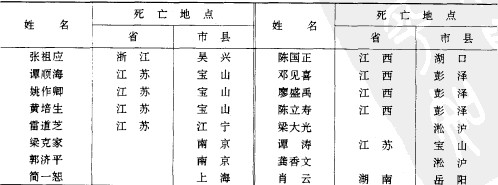 姓 名 死 亡 地 点 姓 名 死 亡 地 点
省 市 县 省 市 县
张祖应 浙 江 吴 兴 陈国正 江 西 湖 口
谭顺海 江 苏 宝 山 邓见喜 江 西 彭 泽
姚作卿 江 苏 宝 山 廖盛禹 江 西 彭 泽
黄培生 江 苏 宝 山 陈立寿 江 西 彭 泽
雷道芝 江 苏 江 宁 梁大光 淞 沪
梁克家 南 京 谭 涛 江 苏 宝 山
郭济平 南 京 龚香文 淞 沪
简一恕 上 海 肖 云 湖 南 岳 阳